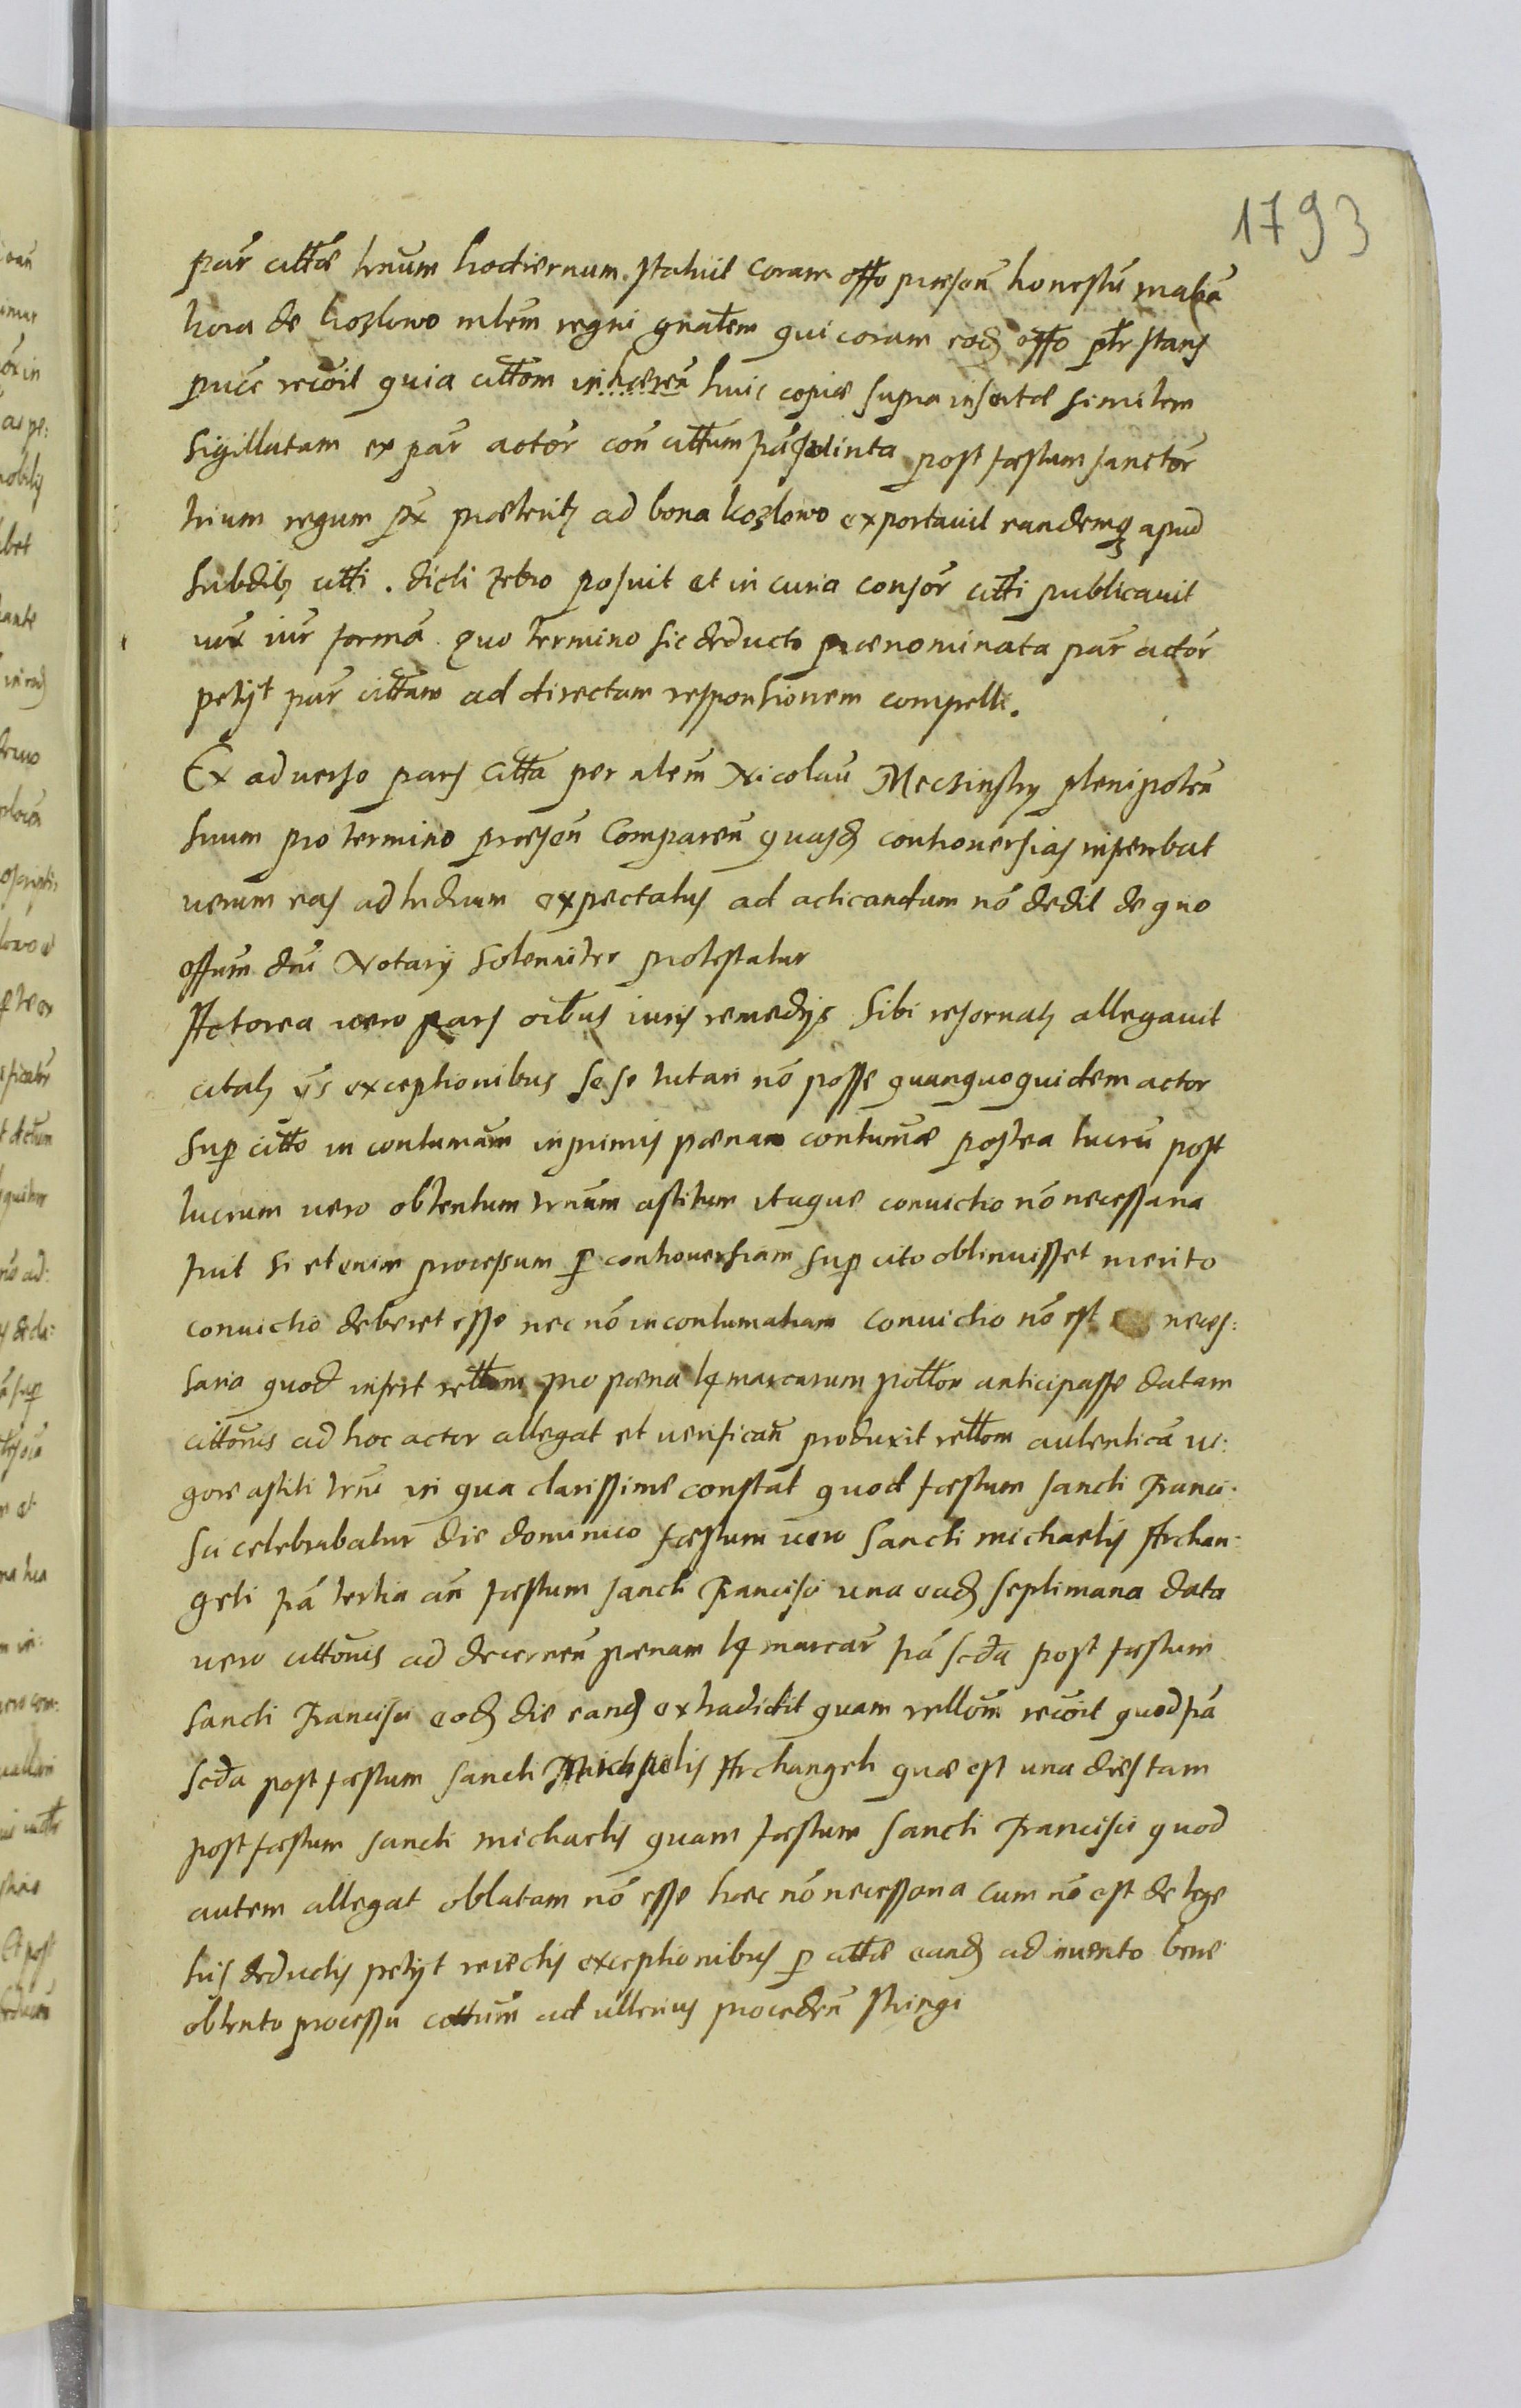 1793
par cittae trnum hodiernum statuit coram offo praesen honestu
kora de kozlowo mlem regni gnalem qui coram eod offo pltr stans
recoit quia cittom inhaeren huic copiae supra insertae similem
sigillatam ex par actor con cittum post foestum sanctor
trium regum px praeterit ad bona kozlowo exportavit eandemq apud
subdit citti . dicti posuit et in curia consor citti publicavit
iux iur forma quo termino sic deducto praenominata par actor
petyt par cittam ad directam responsionem compelli.
Ex adverso pars citta per nlem Nicolau Mecsinsky plenipoten
suum pro termino praesen Comparen quasd controversias inferebat
verum eas ad triduum expectatus ad acticandum no dedit de quo
offum dni Notary solenniter protestatur
Actorea vero pars oibus iuris remedys sibi reservatis allegavit
citatis ys exceptionibus sese tutari no posse quanquoquidem actor
sup citto in contumam inprimis poenam contumae postea lucru post
lucrum vero obtentum trnum astitum itaque convictio no necessaria
fuit si etenim processum p controversiam sup cito obtinuisset merito
convictio deberet esse nec no in contumatiam convictio no est neces:
saria quod infert rellom pro poena 14 marcarum anticipasse datam
cittonis ad hoc actor allegat et verifican produxit rellom autentica vi:
gore astiti trni in qua clarissime constat quod foestum sancti Franci.
sci celebrabatur die dominico foestum vero sancti michaelis Archan:
geli fa tertia an foestum sancti Francisci una ead septimana data
vero cittonis ad decernen poenam 14 marcar fa scda post foestum
sancti Francisci eod die eand extradidit quam rellom recoit quod fa
scda post foestum sancti Michaelis Archangeli quae est una dies tam
post foestum sancti michaelis quam foestum sancti Francisci quod
autem allegat oblatam no esse hoec no necessaria cum no est de lege
his deductis petyt reiectis exceptionibus p cittae eand ad invento bene
obtento processu cittum ad ulterius proceden stringi